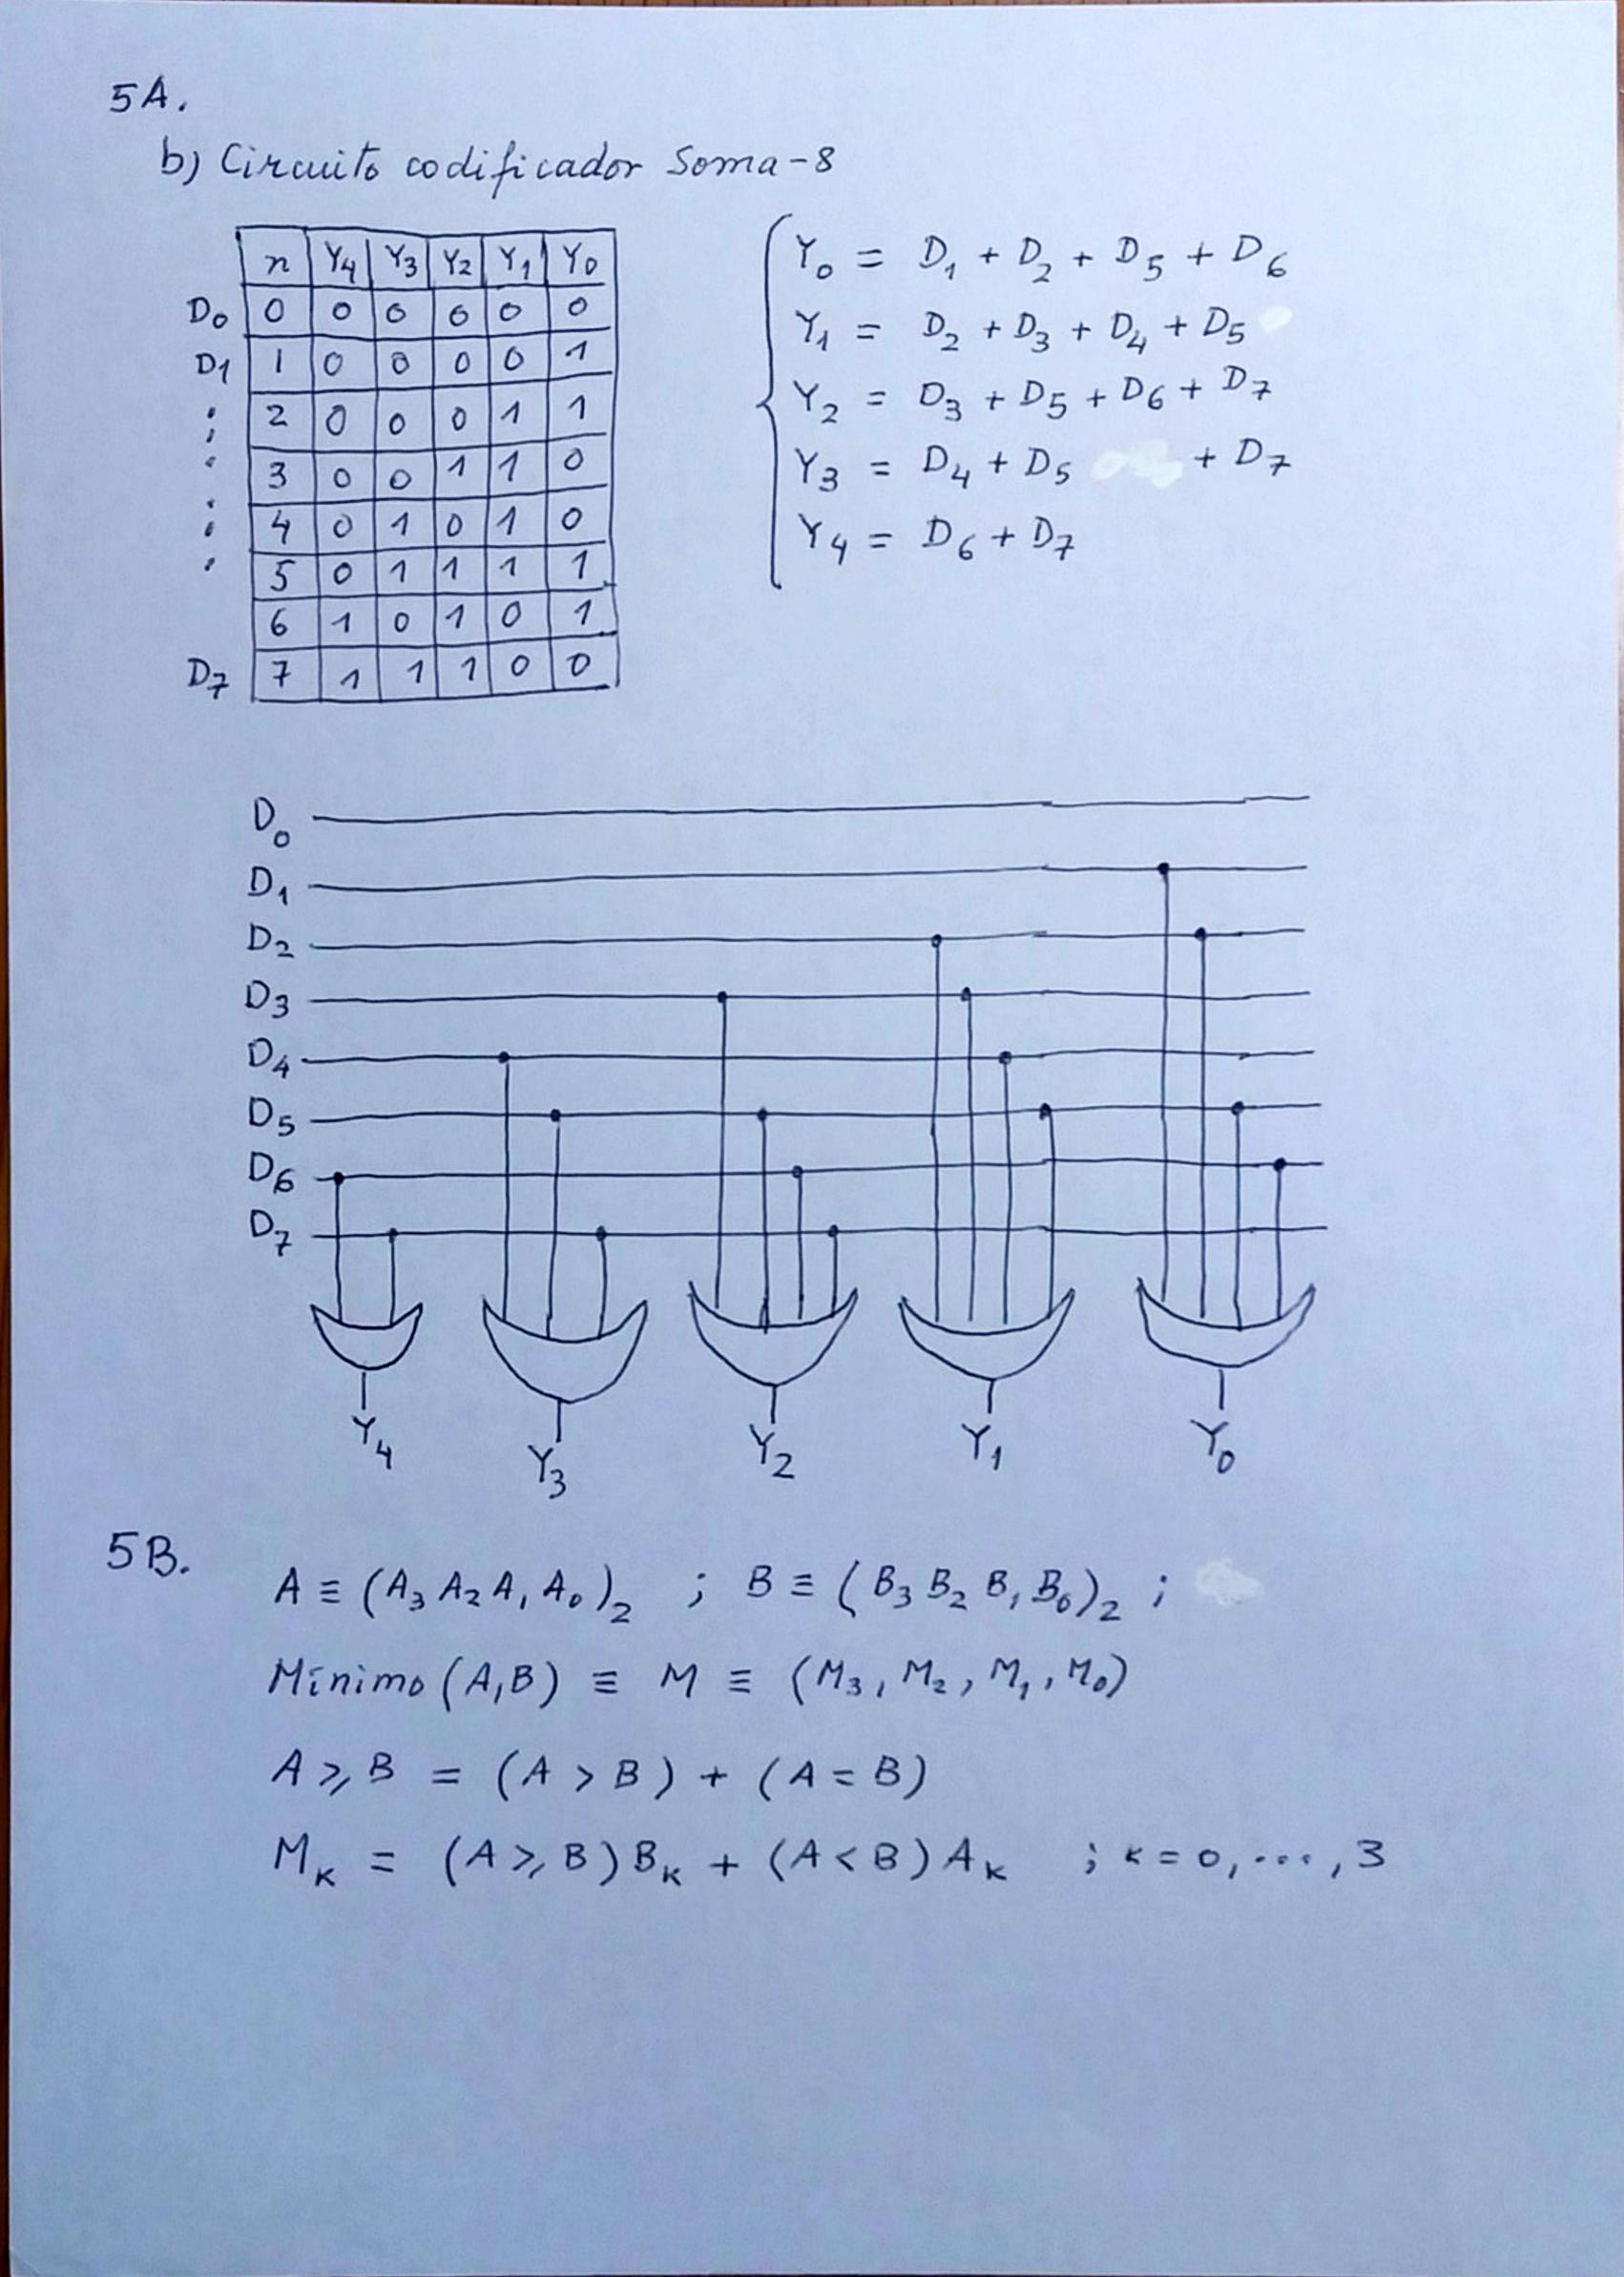 5A.
b) Circuito codificador Soma-8
n Y4 Y3 Y2 Y1 Y0
D0 0 0 0 0 0 0
D1 1 0 0 0 0 1
2 0 0 0 1 1
3 0 0 1 1 0
4 0 1 0 1 0
5 0 1 1 1 1
6 1 0 1 0 1
D7 7 1 1 1 0 0
Y0 = D1 + D2 + D5 + D6
Y1 = D2 + D3 + D4 + D5
Y2 = D3 + D5 + D6 + D7
Y3 = D4 + D5 + D7
Y4 = D6 + D7
D0
D1
D2
D3
D4
D5
D6
D7
Y4 Y3 Y2 Y1 Y0
5B.
A ≡ (A3 A2 A1 A0)2 ; B ≡ (B3 B2 B1 B0)2 ;
Mínimo (A,B) ≡ M ≡ (M3, M2, M1, M0)
A ⩾ B = (A > B) + (A = B)
MK = (A ⩾ B) BK + (A < B) AK ; K = 0, ..., 3